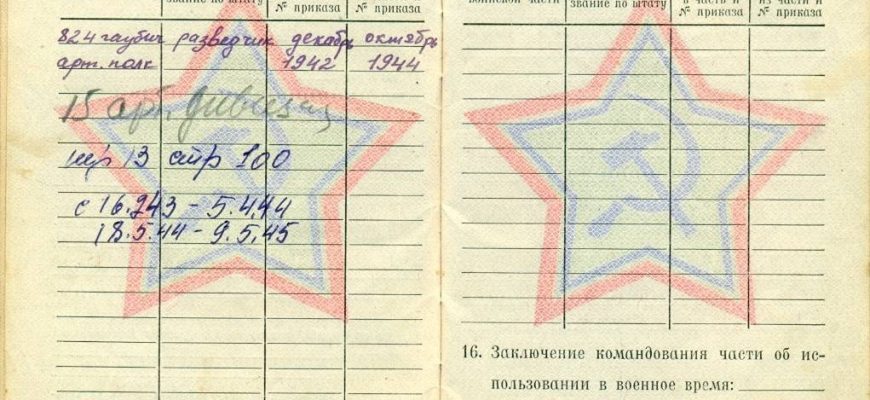 звание по штату
№ приказа
№ приказа
824 гаубич разведчик декабрь октябрь
арт. полк 1942 1944
15 арт. дивизия
пер 13 стр 100
с 16.2.43 - 5.4.44
18.5.44 - 9.5.45
воинской части
звание по штату
в часть и
№ приказа
из части и
№ приказа
16. Заключение командования части об ис-
пользовании в военное время: